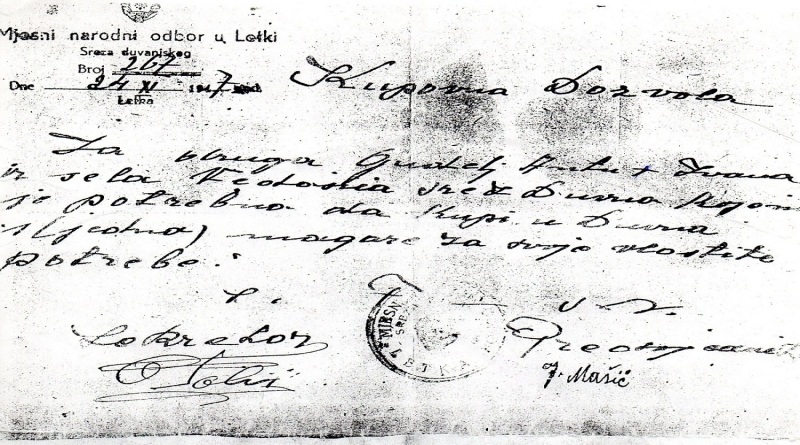 Mjesni narodni odbor u Letki
Sreza duvanjskog
Broj 267
Dne 24 XI 1947 god.
Letka
Kupovna Dozvola
Za druga Gudelj Antu + Ivana
iz sela srez Duvno kojom
je potrebno da kupi u Duvna
1 (jedno) magare za svoje vlastite
potrebe.
S.
Sekretar
MJESNI
LETKA
J. Mašić